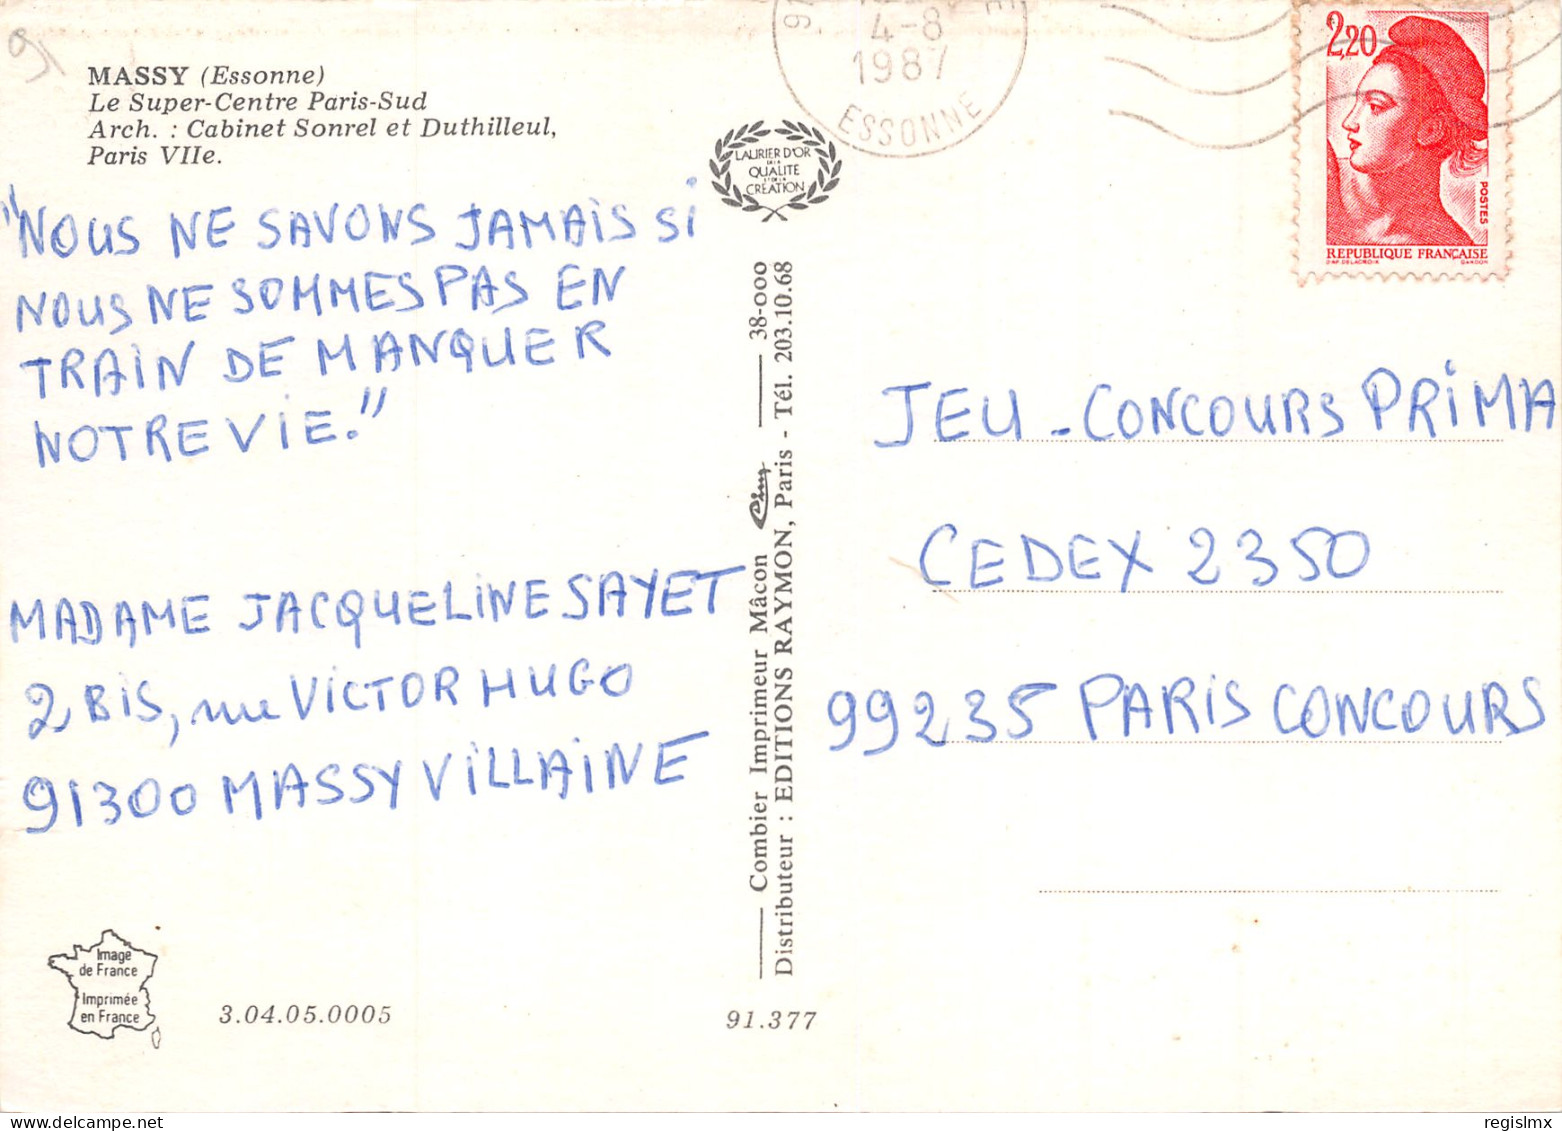 91
MASSY (Essonne)
Le Super-Centre Paris-Sud
Arch. : Cabinet Sonrel et Duthilleul,
Paris VIIe.
"NOUS NE SAVONS JAMAIS SI
NOUS NE SOMMES PAS EN
TRAIN DE MANQUER
NOTRE VIE."
MADAME JACQUELINE SAYET
2 BIS, rue VICTOR HUGO
91300 MASSY VILLAINE
Image
de France
Imprimée
en France
3.04.05.0005
91.377
LAURIER D'OR
DE LA
QUALITE
ET DE LA
CRÉATION
Combier Imprimeur Mâcon Cim 38-000
Distributeur : EDITIONS RAYMON, Paris - Tél. 203.10.68
4-8
1987
ESSONNE
2,20
POSTES
REPUBLIQUE FRANÇAISE
D'AP. DELACROIX GANDON
JEU-CONCOURS PRIMA
CEDEX 2350
99235 PARIS CONCOURS
regislmx